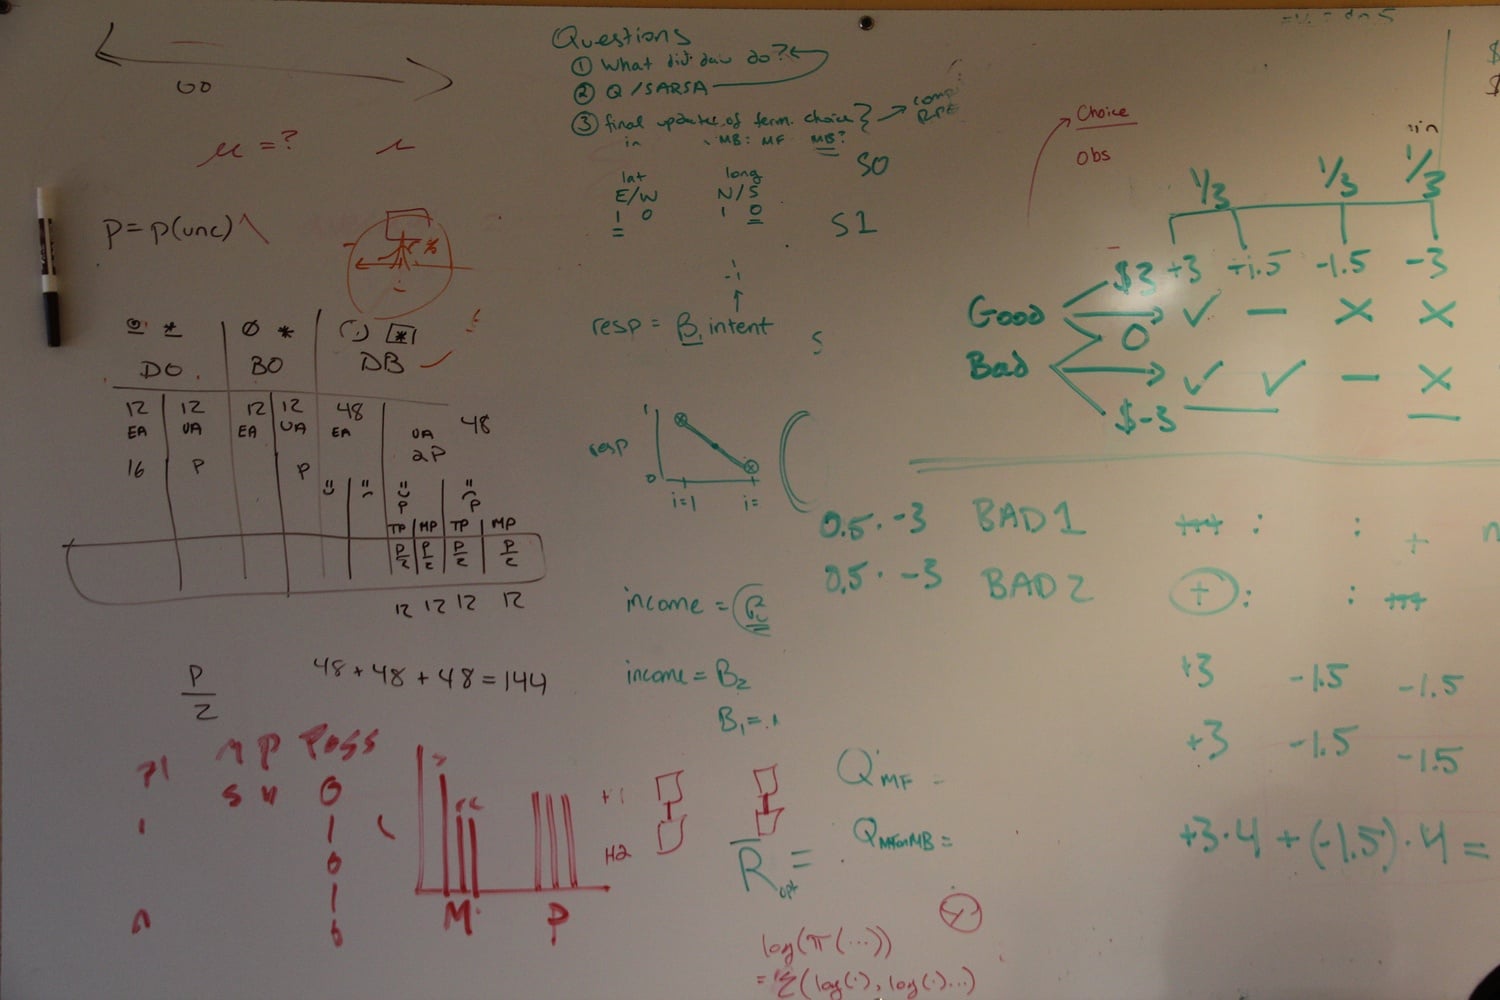 Questions
① What did daw do?
② Q/SARSA
③ final updates of term. choice
in MB: MF MB?
RPE
lat long
E/W N/S
1 0 1 0
S0
S1
μ = ?
P = p(unc)
resp = B₁ intent
DO BO DB
12 12 12 12 48 48
EA UA EA UA EA UA
16 P P 2P
P P
TP MP TP MP
P/2 P/2 P/2 P/2
12 12 12 12
P/2
48 + 48 + 48 = 144
M P Poss
S N 0
1
0
1
M P
+1
H2
resp
1
0
i=1 i=
income =
income = B₂
B₁ = .1
Q MF =
Q MFonMB =
R̄ opt =
log(π(...))
= Σ(log(.), log(.)...)
Choice
obs
1/3 1/3 1/3
$3 +3 +1.5 -1.5 -3
Good ✓ — X X
0
Bad ✓ ✓ — X
$-3
0.5 · -3 BAD 1
0.5 · -3 BAD 2
+3 -1.5 -1.5
+3 -1.5 -1.5
+3·4 + (-1.5)·4 =